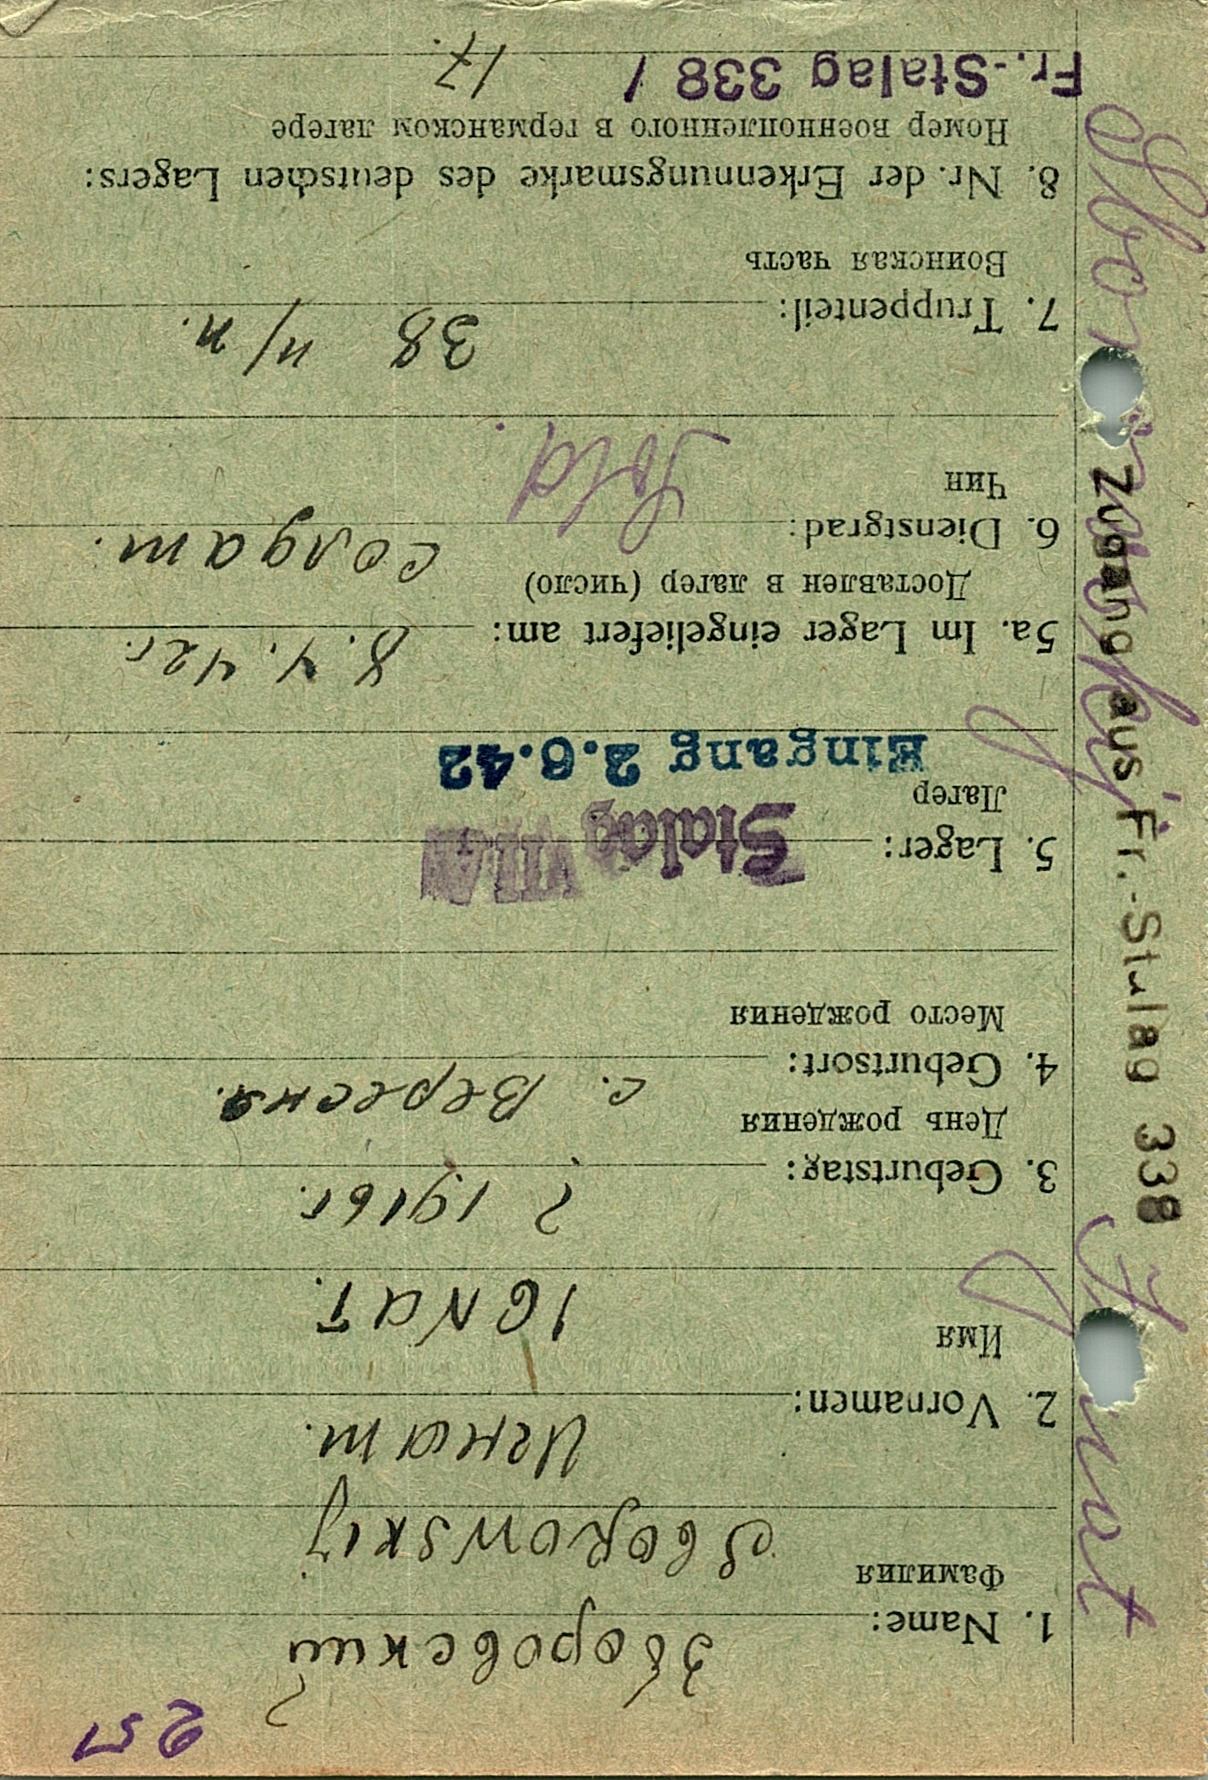 251
1. Name: Зборовский
Фамилия
Sborowskij
Игнат.
2. Vornamen:
Имя
IGNAT.
3. Geburtstag: ? 1916 г.
День рождения
4. Geburtsort: с. Вересня.
Место рождения
5. Lager: Stalag VII A
Лагер
Eingang 2.6.42
5a. Im Lager eingeliefert am: 8.4.42 г.
Доставлен в лагер (число)
6. Dienstgrad: солдат.
Чин
Sold.
7. Truppenteil: 38 п/п.
Воинская часть
8. Nr. der Erkennungsmarke des deutschen Lagers:
Номер военнопленного в германском лагере
Fr.-Stalag 338 / 17.
Sborowskij Ignat
Zugang aus Fr.-Stalag 338